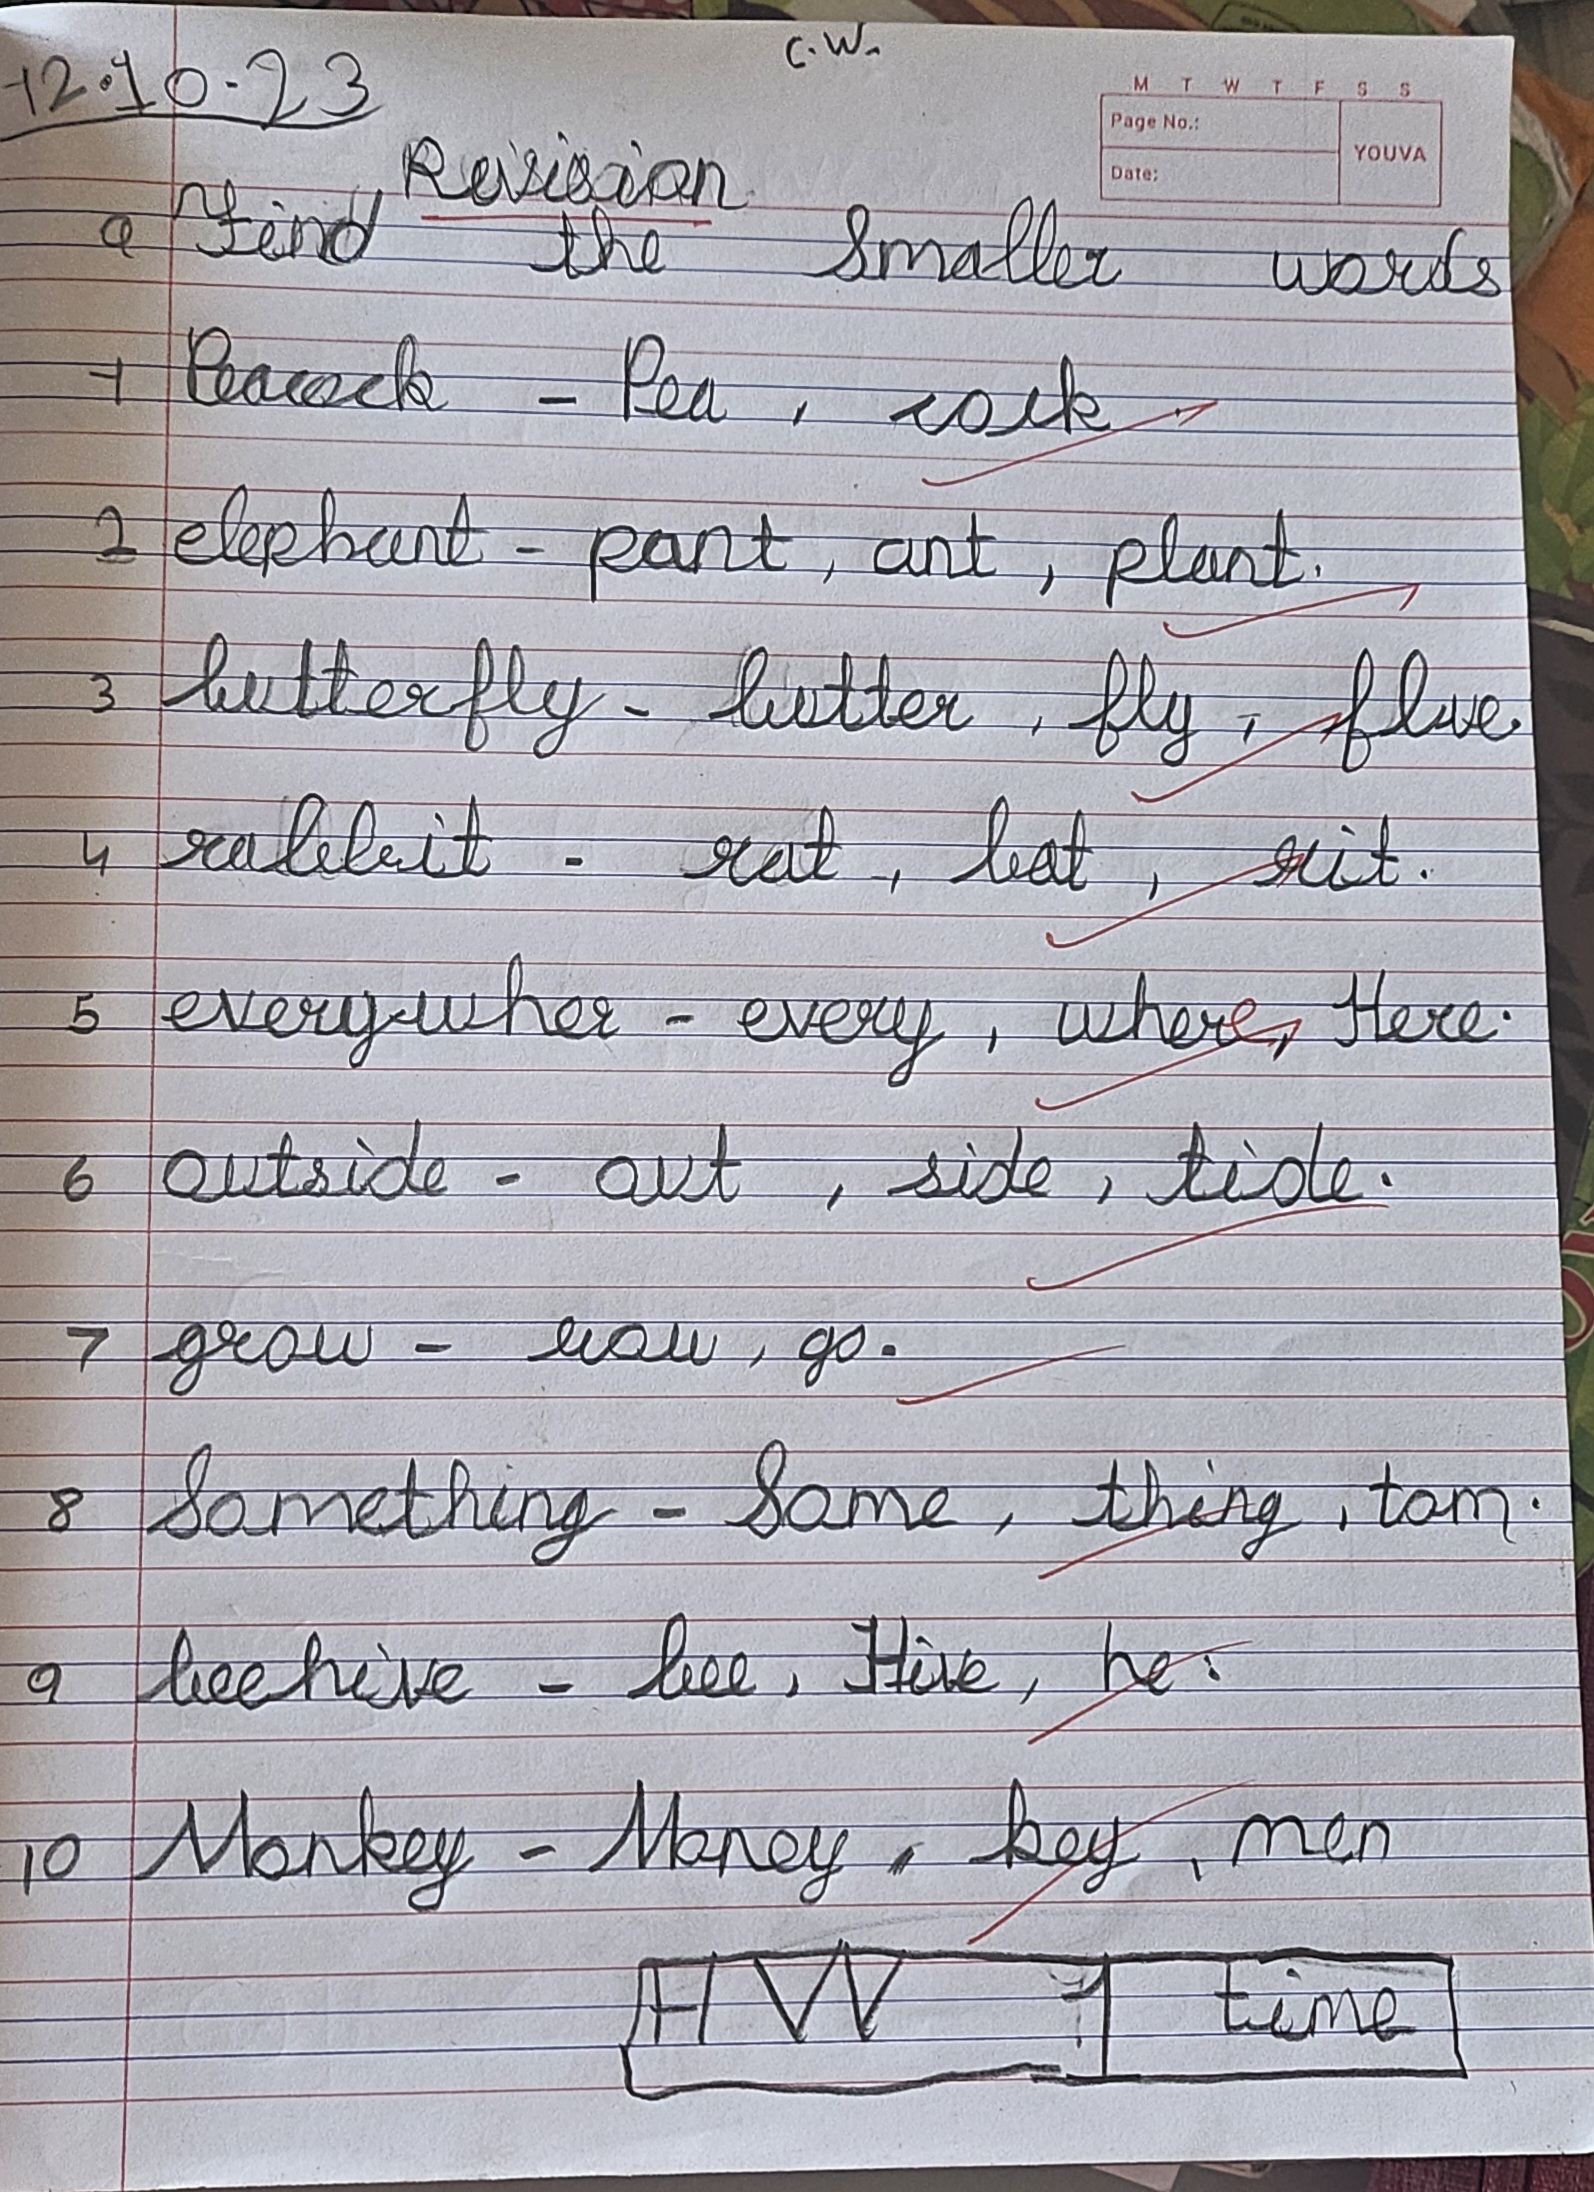 C.W.
12.10.23
M T W T F S S
Page No.:
YOUVA
Date:
Revision
Q Find the Smaller words
1 Peacock - Pea, cock.
2 elephant - pant, ant, plant.
3 butterfly - butter, fly,
4 rabbit - rat, bat,
5 everywher - every, where, Here.
6 outside - out, side, tide.
7 grow - row, go.
8 Something - Some, thing, tom.
9 beehive - bee, Hive, he.
10 Monkey - Money, key, men
HW 1 time